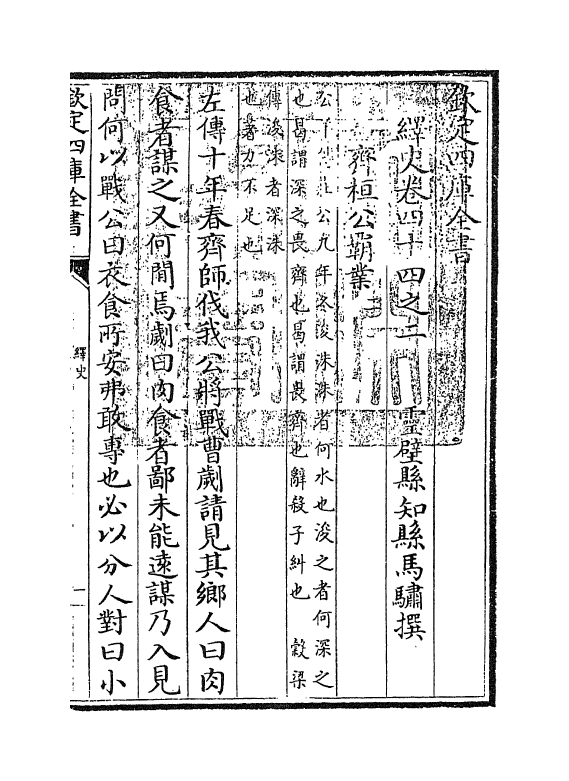 欽定四庫全書
繹史卷四十四之二　靈壁縣知縣馬驌撰
齊桓公霸業
公羊傳莊公九年冬浚洙洙者何水也浚之者何深之
也曷謂深之畏齊也曷謂畏齊也辭殺子糾也　穀梁
傳浚洙者深洙
也著力不足也
左傳十年春齊師伐我公將戰曹劌請見其鄉人曰肉
食者謀之又何間焉劌曰肉食者鄙未能遠謀乃入見
問何以戰公曰衣食所安弗敢專也必以分人對曰小
欽定四庫全書
繹史
二